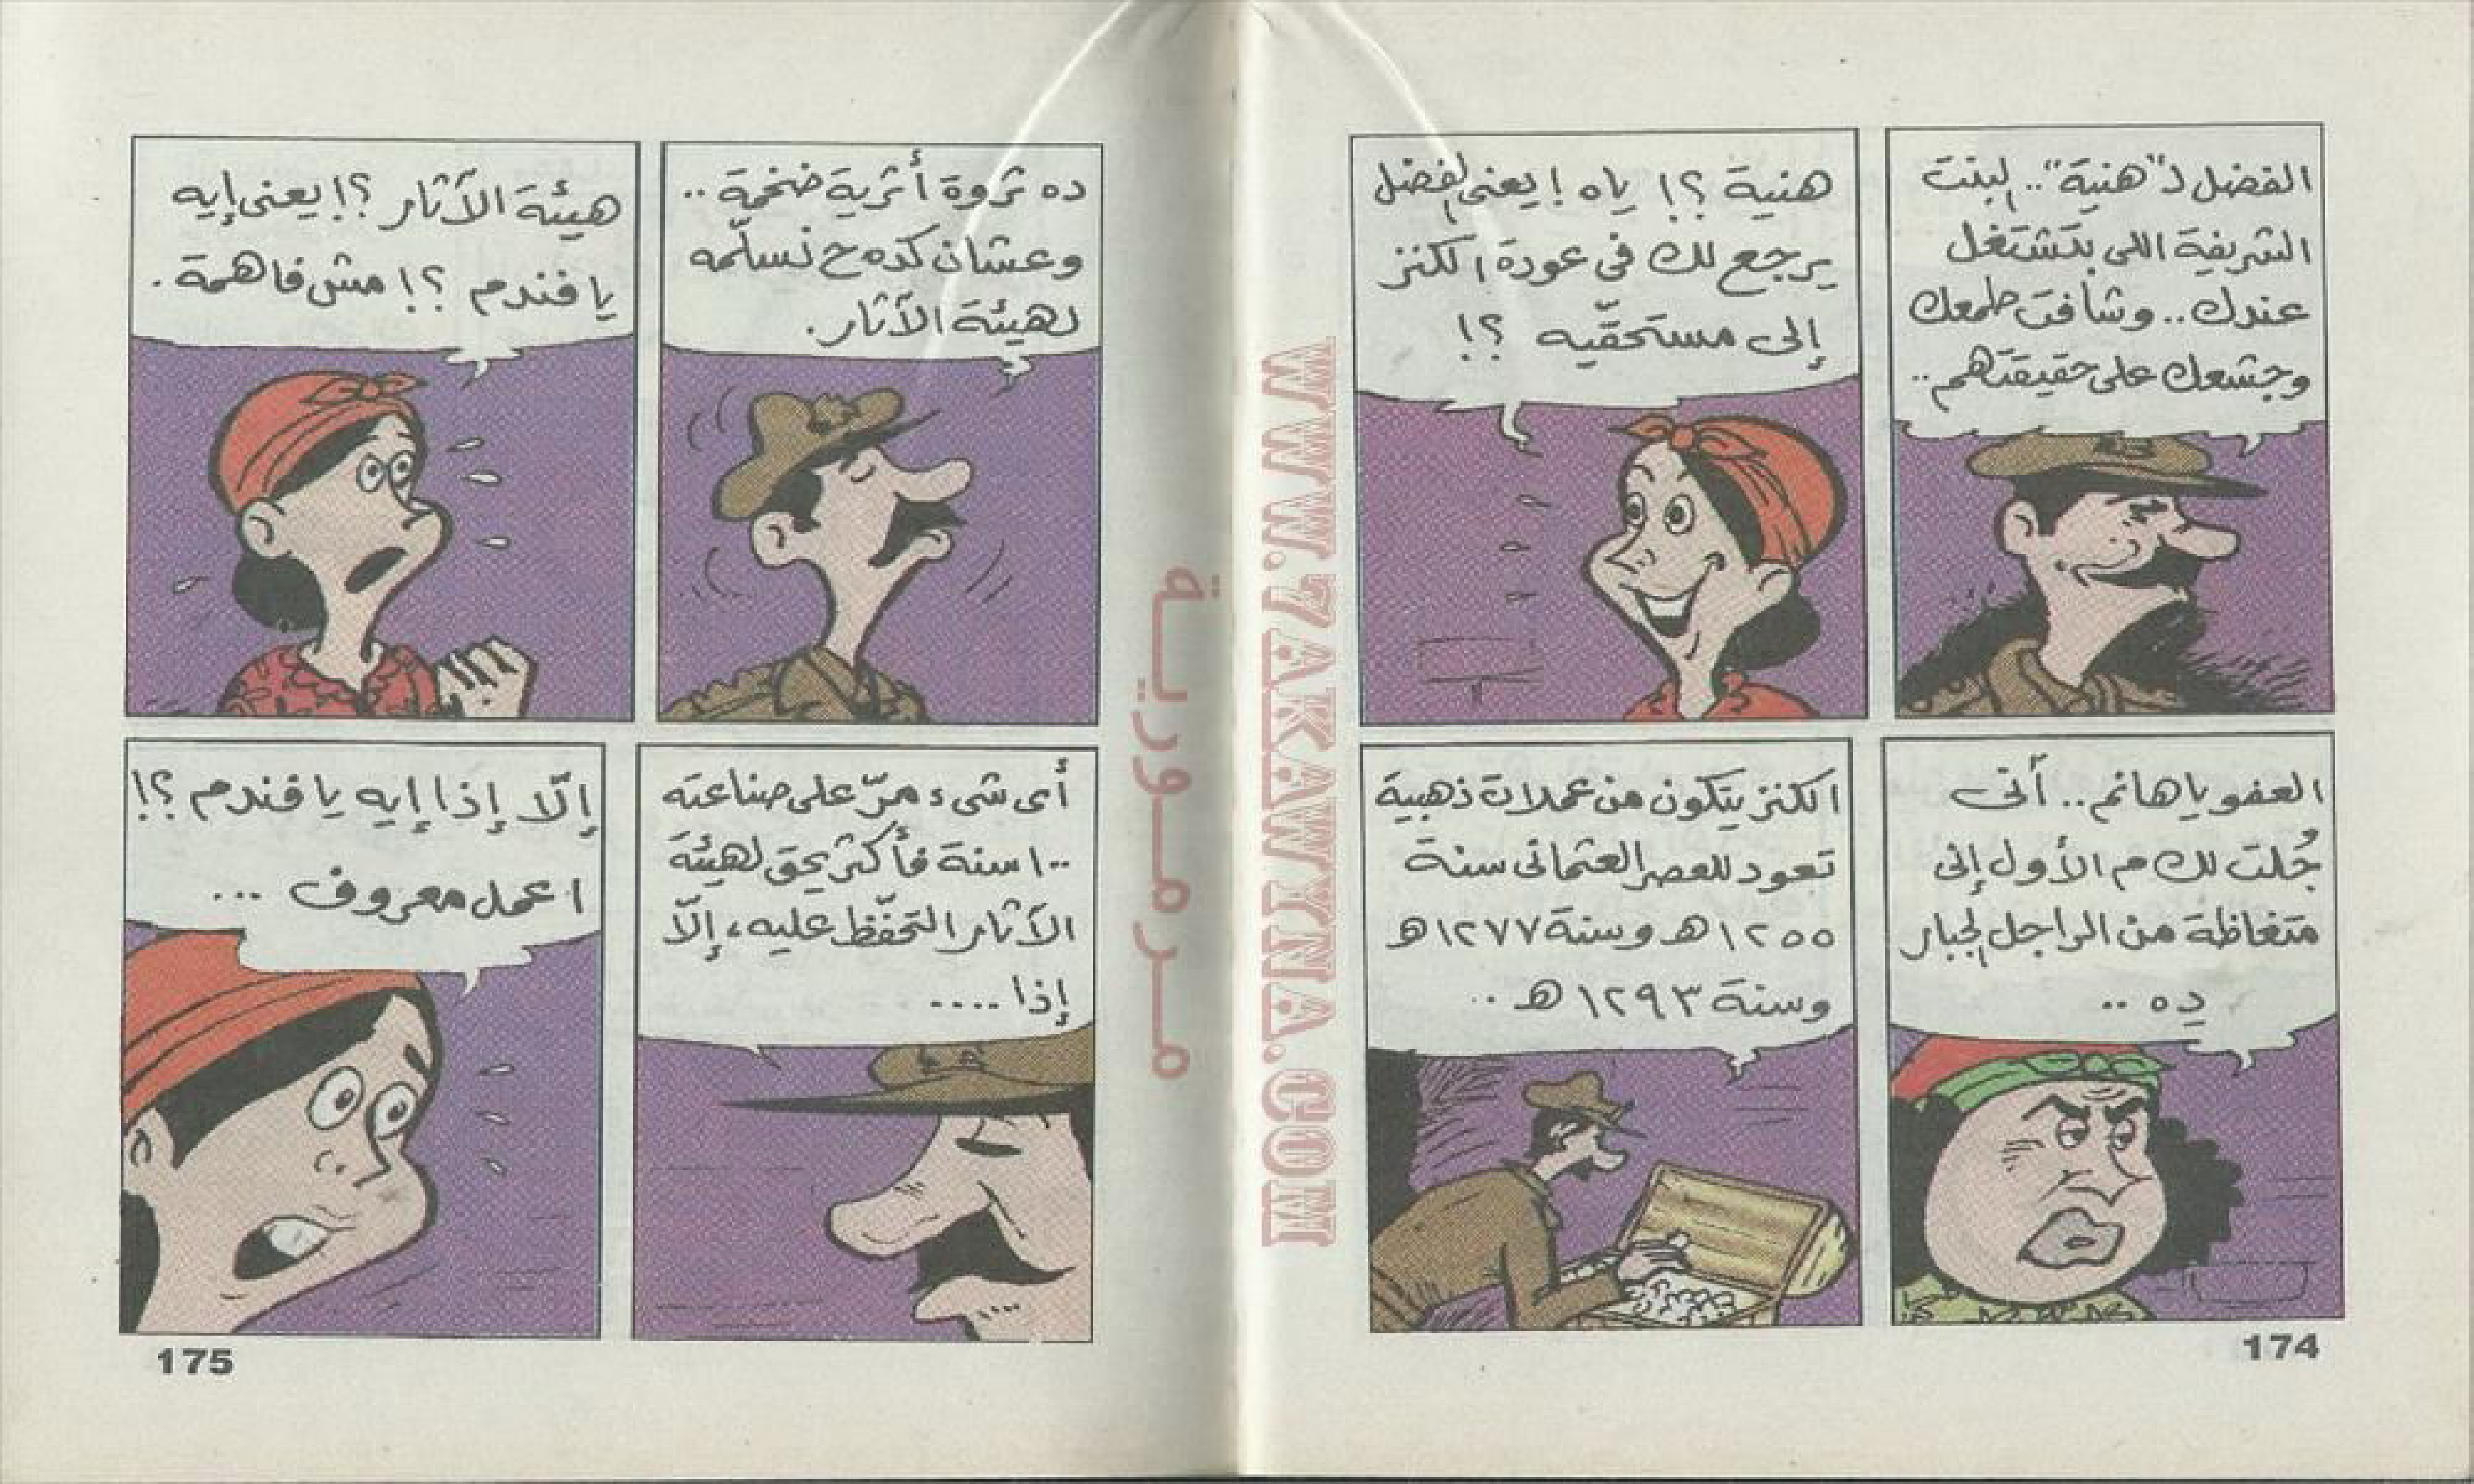 الفضل لـ"هنية".. البنت
الشريفة اللى بتشتغل
عندك.. وشافت طمعك
وجشعك على حقيقتهم..
هنية؟! ياه! يعنى الفضل
يرجع لك فى عودة الكنز
إلى مستحقّيه ؟!
العفو يا هانم.. أنى
جُلت لك م الأول إنى
متغاظة من الراجل الجبار
دِه ..
الكنز يتكون من عملات ذهبية
تعود للعصر العثمانى سنة
١٢٥٥هـ وسنة ١٢٧٧هـ
وسنة ١٢٩٣هـ ..
174
ده ثروة أثرية ضخمة ..
وعشان كده ح نسلّمه
لهيئة الآثار.
هيئة الآثار ؟! يعنى إيه
يا فندم ؟! مش فاهمة .
أى شىء مرّ على صناعته
١٠٠ سنة فأكثر يحق لهيئة
الآثار التحفّظ عليه، إلّا
إذا ....
إلّا إذا إيه يا فندم ؟!
اعمل معروف ...
175
مرمورية
WWW.7AKAWYNA.COM